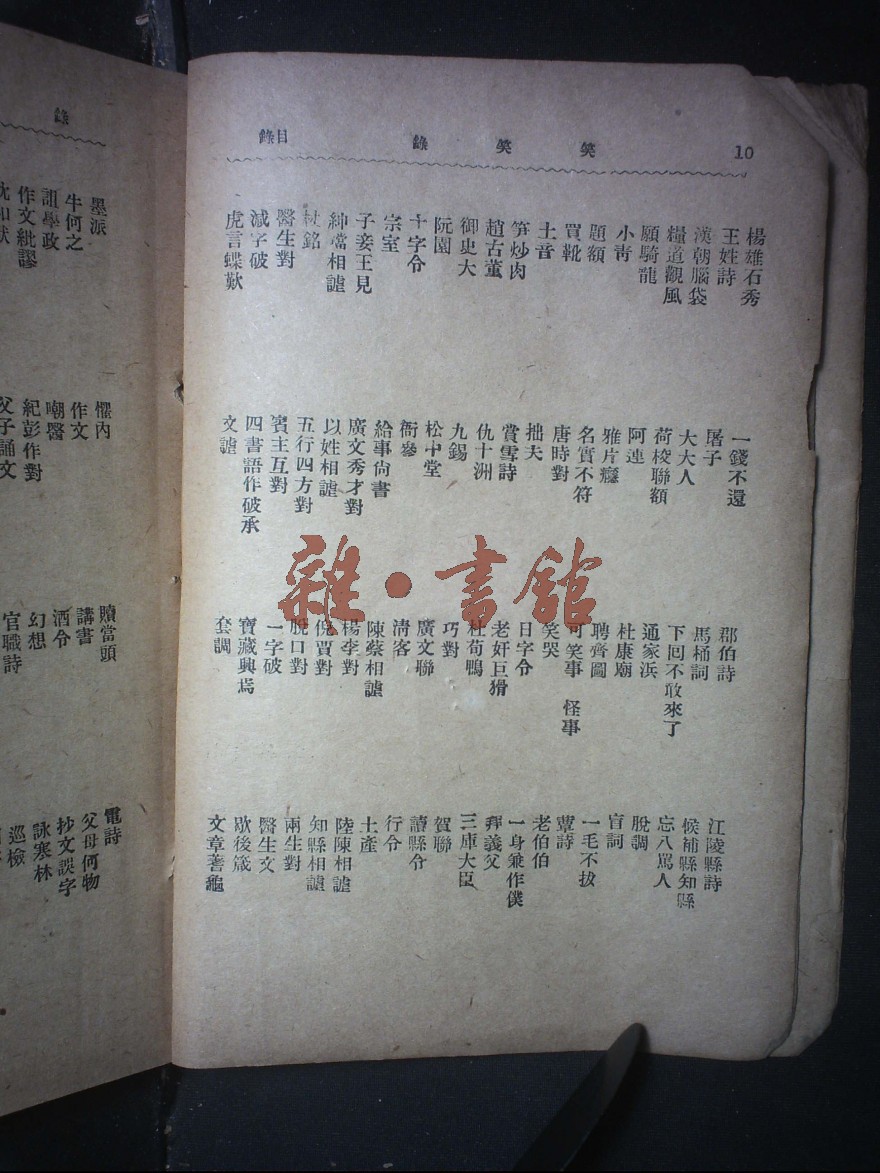 10
笑笑錄
目錄
楊雄石秀
王姓詩
漢朝腦袋
糧道觀風
願騎龍
小靑
題額
買靴
土音
笋炒肉
趙古董
御史大
阮園
十字令
宗室
子妾王見
相謔
杖銘
醫生對
減字破
虎言蝶歎
一錢不還
屠子
大大人
荷梭聯額
阿連
雅片癮
名實不符
唐時對
拙夫
賞雪詩
仇十洲
九錫
松中堂
衙參
給事尙書
廣文秀才對
以姓相謔
五行四方對
賓主互對
四書語作破承
文謔
郡伯詩
馬桶詞
下回不敢來了
通家浜
杜康廟
聘齊圖
可笑事 怪事
笑哭
日字令
老奸巨猾
杜荀鴨
巧對
廣文聯
淸客
陳蔡相謔
楊李對
倪賈對
脫口對
一字破
寶藏興焉
套調
江陵縣詩
候補縣知縣
忘八罵人
脫調
盲詞
一毛不拔
蕈詩
老伯伯
一身兼作僕
拜義父
三庫大臣
賀聯
讀縣令
行令
土產
陸陳相謔
知縣相謔
兩生對
醫生文
歇後箴
文章蓍龜
錄
墨派
牛何之
詛學政
作文紕謬
懼內
作文
嘲醫
紀彭作對
父子誦文
贖當頭
講書
酒令
幻想
官職詩
電詩
父母何物
抄文誤字
詠寒林
巡檢
雜·書館